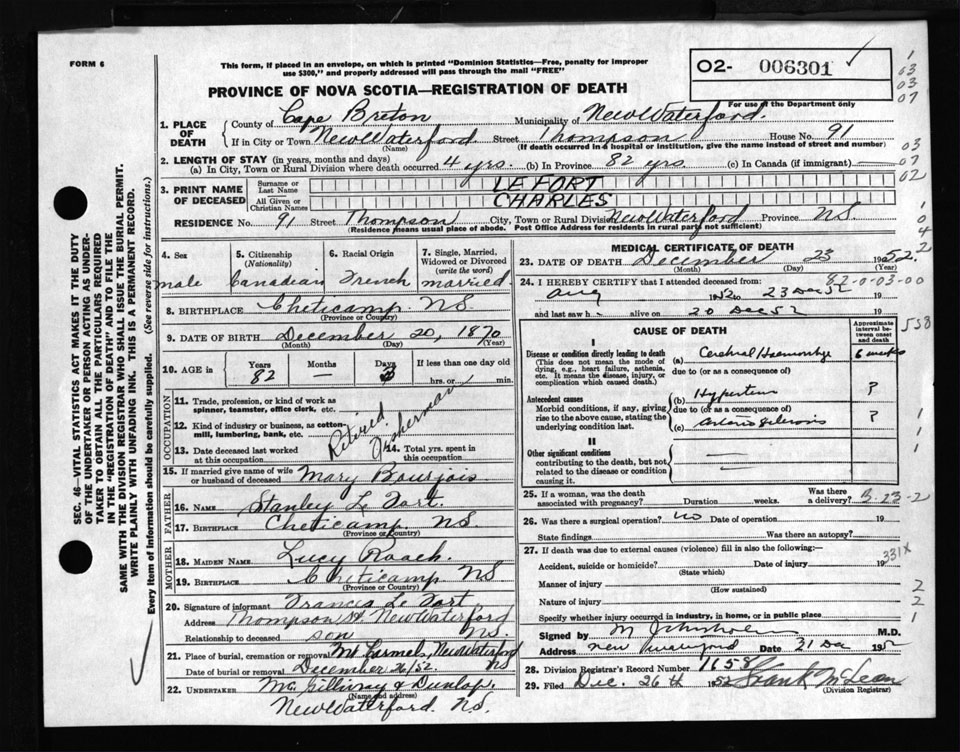 FORM 6
This form, if placed in an envelope, on which is printed "Dominion Statistics—Free, penalty for improper
use $300," and properly addressed will pass through the mail "FREE"
O2- 006301 ✓
For use of the Department only
PROVINCE OF NOVA SCOTIA—REGISTRATION OF DEATH
1. PLACE OF DEATH
County of Cape Breton Municipality of New Waterford.
If in City or Town New Waterford Street Thompson House No. 91
(Name) (If death occurred in a hospital or institution, give the name instead of street and number)
2. LENGTH OF STAY (in years, months and days)
(a) In City, Town or Rural Division where death occurred 4 yrs. (b) In Province 82 yrs. (c) In Canada (if immigrant)
3. PRINT NAME OF DECEASED
Surname or Last Name LEFORT
All Given or Christian Names CHARLES
RESIDENCE No. 91 Street Thompson City, Town or Rural Division New Waterford Province N.S.
(Residence means usual place of abode. Post Office Address for residents in rural parts not sufficient)
4. Sex male
5. Citizenship (Nationality) Canadian
6. Racial Origin French
7. Single, Married, Widowed or Divorced (write the word) married.
8. BIRTHPLACE Cheticamp N.S.
(Province or Country)
9. DATE OF BIRTH December 20, 1870
(Month) (Day) (Year)
10. AGE in Years 82 Months — Days 3 If less than one day hrs. or min.
OCCUPATION
11. Trade, profession, or kind of work as spinner, teamster, office clerk, etc.
12. Kind of industry or business, as cotton mill, lumbering, bank, etc.
Retired Fisherman
13. Date deceased last worked at this occupation
14. Total yrs. spent in this occupation
15. If married give name of wife or husband of deceased Mary Bourjois
FATHER
16. NAME Stanley Le Fort
17. BIRTHPLACE Cheticamp, N.S.
(Province or Country)
MOTHER
18. MAIDEN NAME Lucy Roach.
19. BIRTHPLACE Cheticamp N.S
(Province or Country)
20. Signature of informant Francis Le Fort
Address Thompson St New Waterford N.S.
Relationship to deceased son
21. Place of burial, cremation or removal Mt Carmels, New Waterford NS
Date of burial or removal December 26/52.
22. UNDERTAKER Mc Gillivray & Dunlop.
(Name and address)
New Waterford. N.S.
MEDICAL CERTIFICATE OF DEATH
23. DATE OF DEATH December 23 1952.
(Month) (Day) (Year)
24. I HEREBY CERTIFY that I attended deceased from: 82-0-03-00
Aug 1952 to 23 Dec 52 19
and last saw h alive on 20 Dec 52 19
CAUSE OF DEATH
Approximate interval between onset and death
I
Disease or condition directly leading to death (a) Cerebral Haemorrhage 6 weeks
(This does not mean the mode of dying, e.g., heart failure, asthenia, etc. It means the disease, injury, or complication which caused death.)
due to (or as a consequence of)
Antecedent causes (b) Hypertension ?
Morbid conditions, if any, giving rise to the above cause, stating the underlying condition last.
due to (or as a consequence of)
(c) Arteriosclerosis ?
II
Other significant conditions
contributing to the death, but not related to the disease or condition causing it.
25. If a woman, was the death associated with pregnancy? Duration weeks. Was there a delivery? 3-23-2
26. Was there surgical operation? no Date of operation 19
State findings Was there an autopsy?
27. If death was due to external causes (violence) fill in also the following:—
331X
Accident, suicide or homicide? Date of injury 19
(State which)
Manner of injury
(How sustained)
Nature of injury
Specify whether injury occurred in industry, in home, or in public place
Signed by M.D.
Address New Waterford Date 31 Dec 195
28. Division Registrar's Record Number 1658
29. Filed Dec. 26th 1952 Frank McLean
(Division Registrar)
SEC. 46—VITAL STATISTICS ACT MAKES IT THE DUTY
OF THE UNDERTAKER OR PERSON ACTING AS UNDER-
TAKER TO OBTAIN ALL THE PARTICULARS REQUIRED
IN THE "REGISTRATION OF DEATH" AND TO FILE THE
SAME WITH THE DIVISION REGISTRAR WHO SHALL ISSUE THE BURIAL PERMIT.
WRITE PLAINLY WITH UNFADING INK. THIS IS A PERMANENT RECORD.
Every item of information should be carefully supplied. (See reverse side for instructions.)
1
03
03
07
03
07
02
558
2
2
1